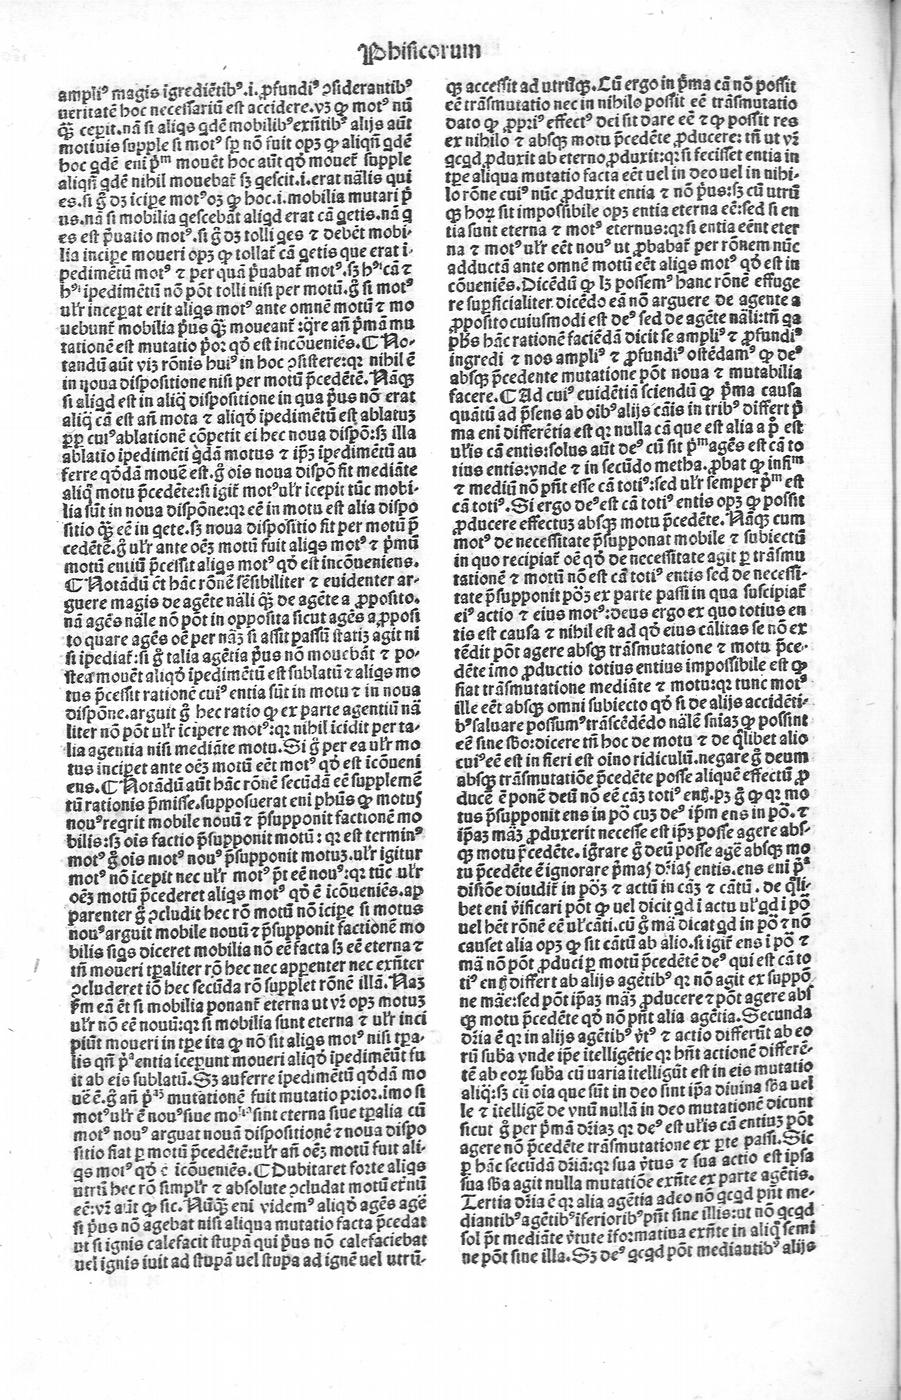 Phisicorum
ampliꝰ magis igrediētibꝰ.i. ꝓfundiꝰ ↄsiderantibꝰ
ueritatē hoc necessariū est accidere.vꝫ ꝙ motꝰ nū
qꝫ̄ cepit.nā si aliqs qdē mobilibꝰ exn̄tibꝰ alijs aūt
motiuis supple si motꝰ sp̄ nō fuit opꝫ ꝙ aliqn̄ qdē
hoc qdē eni p̄ᵐ mouēt hoc aūt qd̄ mouet̄ supple
aliqn̄ qdē nihil mouebat̄ sꝫ qescit.i.erat nālis qui
es.si g̊ dꝫ icipe motꝰ oꝫ ꝙ hoc.i.mobilia mutari p̄
us.nā si mobilia qescebāt aliqd erat cā qetis.nā q
es est p̄uatio motꝰ.si g̊ dꝫ tolli qes ⁊ debēt mobi-
lia incipe moueri opꝫ ꝙ tollat̄ cā qetis que erat i-
pedimētū motꝰ ⁊ per quā p̄uabat̄ motꝰ.sꝫ hꝰⁱ cā ⁊
hꝰⁱ ipedimētū nō pōt tolli nisi per motū.g̊ si motꝰ
ul̄r inceperat erit aliqs motꝰ ante omnē motū ⁊ mo
uebunt̄ mobilia p̄us qꝫ̄ moueant̄ :qr̄e an̄ p̄mā mu
tationē est mutatio p̄or qd̄ est incōueniēs.¶No-
tandū aūt viꝫ rōnis huiꝰ in hoc ↄsistere:qꝛ nihil ē
in noua dispositione nisi per motū p̄cedētē.Nāqꝫ
si aliqd est in aliq̄ dispositione in qua p̄us nō erat
aliq̄ cā est an̄ mota ⁊ aliqd̄ ipedimētū est ablatuꝫ
ꝓp̄ cuiꝰ ablationē cōpetit ei hec noua dispō:sꝫ illa
ablatio ipedimēti q̄dā motus ⁊ ip̄ꝫ ipedimētū au
ferre qd̄dā mouē est.g̊ oīs noua dispō fit mediāte
aliq̄ motu p̄cedēte:si igit̄ motꝰul̄r icepit tūc mobi-
lia sūt in noua dispōne:qꝛ eē in motu est alia dispo
sitio qꝫ̄ eē in qete.sꝫ noua dispositio fit per motū p̄
cedētē.g̊ ul̄r ante oēꝫ motū fuit aliqs motꝰ ⁊ p̄mū
motū entiū p̄cessit aliqs motꝰ qd̄ est incōueniens.
¶Notādū ēt hāc rōnē sēsibiliter ⁊ euidenter ar-
guere magis de agēte nāli qꝫ̄ de agēte a ꝓposito.
nā agēs nāle nō pōt in opposita sicut agēs a ꝓposi
to quare agēs oē per nāꝫ si assit passū statiꝫ agit ni
si ipediat̄:si g̊ talia agētia p̄us nō mouebāt ⁊ po-
stea mouēt aliqd̄ ipedimētū est sublatū ⁊ aliqs mo
tus p̄cessit rationē cuiꝰ entia sūt in motu ⁊ in noua
dispōne.arguit g̊ hec ratio ꝙ ex parte agentiū nā
liter nō pōt ul̄r icipere motꝰ:qꝛ nihil icidit per ta-
lia agentia nisi mediāte motu.Si g̊ per ea ul̄r mo
tus inciperet ante oēꝫ motū eēt motꝰ qd̄ est icōueni
ens.¶Notādū aūt hāc rōnē secūdā eē supplemē
tū rationis p̄misse.supposuerat eni ph̄us ꝙ motus
nouꝰreqrit mobile nouū ⁊ p̄supponit factionē mo
bilis:sꝫ oīs factio p̄supponit motū: qꝛ est terminꝰ
motꝰ g̊ oīs motꝰ nouꝰ p̄supponit motuꝫ.ul̄r igitur
motꝰ nō icepit nec ul̄r motꝰ p̄t eē nouꝰ:qꝛ tūc ul̄r
oēꝫ motū p̄cederet aliqs motꝰ qd̄ ē icōueniēs.ap
parenter g̊ ↄcludit hec rō motū nō icipe si motus
nouꝰarguit mobile nouū ⁊ p̄supponit factionē mo
bilis siqs diceret mobilia nō eē facta sꝫ eē eterna ⁊
tn̄ moueri tp̄aliter rō hec nec apparenter nec exn̄ter
ↄcluderet iō hec secūda rō supplet rōnē illā.Naꝫ
fm eā ēt si mobilia ponant̄ eterna ut vr̄ opꝫ motuꝫ
ul̄r nō eē nouū:qꝛ si mobilia sunt eterna ⁊ ul̄r inci
piūt moueri in tp̄e ita ꝙ nō sit aliqs motꝰ nisi tp̄a-
lis qn̄ p̄ᵃ entia iceperunt moueri aliqd̄ ipedimētū fu
it ab eis sublatū.Sꝫ auferre ipedimētū qd̄dā mo
uē ē.g̊ an̄ p̄ᵃꝫ mutationē fuit mutatio prior.imo si
motꝰul̄r ē nouꝰsiue sint eterna siue tp̄alia cū
motꝰ nouꝰ arguat nouā dispositionē ⁊ noua dispo
sitio fiat ꝑ motū p̄cedētē:ul̄r an̄ oēꝫ motū fuit ali-
qs motꝰ qd̄ ē icōueniēs.¶Dubitaret forte aliqs
utrū hec rō simpl̄r ⁊ absolute ↄcludat motū et̄nū
eē:vr̄ aūt ꝙ sic.Nūq̄ꝫ eni videmꝰ aliqd̄ agēs agē
si p̄us nō agebat nisi aliqua mutatio facta p̄cedat
ut si ignis calefacit stupā qui p̄us nō calefaciebat
uel ignis iuit ad stupā uel stupa ad ignē uel utrū-
qꝫ accessit ad utrūqꝫ.Cū ergo in p̄ma cā nō possit
eē trāsmutatio nec in nihilo possit eē trāsmutatio
dato ꝙ ꝓpriꝰ effectꝰ dei sit dare eē ⁊ ꝙ possit res
ex nihilo ⁊ absqꝫ motu p̄cedēte ꝓducere: tn̄ ut vr̄
qcqd ꝓduxit ab eterno ꝓduxit:qꝛ si fecisset entia in
tp̄e aliqua mutatio facta eēt uel in deo uel in nihi-
lo rōne cuiꝰ nūc ꝓduxit entia ⁊ nō p̄us:sꝫ cū utrū
qꝫ hoꝝ sit impossibile opꝫ entia eterna eē:sed si en
tia sunt eterna ⁊ motꝰ eternus:qꝛ si entia eēnt eter
na ⁊ motꝰ ul̄r eēt nouꝰ ut ꝓbabat̄ per rōnem nūc
adductā ante omnē motū eēt aliqs motꝰ qd̄ est in
cōueniēs.Dicēdū ꝙ lꝫ possemꝰ hanc rōnē effuge
re suꝑficialiter dicēdo eā nō arguere de agente a
ꝓposito cuiusmodi est deꝰ sed de agēte nāli:tn̄ qa
ph̄s hāc rationē faciēdā dicit se ampliꝰ ⁊ ꝓfundiꝰ
ingredi ⁊ nos ampliꝰ ⁊ ꝓfundiꝰ ostēdamꝰ ꝙ deꝰ
absqꝫ p̄cedente mutatione pōt noua ⁊ mutabilia
facere.¶Ad cuiꝰ euidētiā sciendū ꝙ p̄ma causa
quātū ad p̄sens ab oībꝰalijs cāis in tribꝰ differt p̄
ma eni differētia est qꝛ nulla cā que est alia a p̄ est
ul̄is cā entis:solus aūt deꝰ cū sit p̄ᵐ agēs est cā to
tius entis:vnde ⁊ in secūdo metha.ꝓbat ꝙ infiᵐ
⁊ mediū nō pn̄t esse cā totiꝰ:sed ul̄r semper p̄ᵐ est
cā totiꝰ.Si ergo deꝰest cā totiꝰ entis opꝫ ꝙ possit
ꝓducere effectuꝫ absqꝫ motu p̄cedēte.Nāqꝫ cum
motꝰ de necessitate p̄supponat mobile ⁊ subiectū
in quo recipiat̄ oē qd̄ de necessitate agit ꝑ trāsmu
tationē ⁊ motū nō est cā totiꝰ entis sed de necessi-
tate p̄supponit pōꝫ ex parte passi in qua suscipiat̄
eiꝰ actio ⁊ eius motꝰ:deus ergo ex quo totius en
tis est causa ⁊ nihil est ad qd̄ eius cālitas se nō ex
tēdit pōt agere absqꝫ trāsmutatione ⁊ motu p̄ce-
dēte imo ꝓductio totius entius impossibile est ꝙ
fiat trāsmutatione mediāte ⁊ motu:qꝛ tunc motꝰ
ille eēt absqꝫ omni subiecto qd̄ si de alijs accidēti-
bꝰsaluare possumꝰtrāscēdēdo nālē sn̄iaꝫ ꝙ possint
eē sine sb̄o:dicere tn̄ hoc de motu ⁊ de q̄libet alio
cuiꝰeē est in fieri est oīno ridiculū.negare g̊ deum
absqꝫ trāsmutatiōe p̄cedēte posse aliquē effectū ꝓ
ducē ē ponē deū nō eē cāꝫ totiꝰ entꝫ.pꝫ g̊ ꝙ qꝛ mo
tus p̄supponit ens in pō cuꝫ deꝰ ip̄m ens in pō.⁊
ip̄aꝫ māꝫ ꝓduxerit necesse est ip̄ꝫ posse agere abs-
qꝫ motu p̄cedēte.igrare g̊ deū posse agē absqꝫ mo
tu p̄cedēte ē ignorare p̄mas dr̄ias entis.ens eni p̄ᵃ
diſiōe diuidit̄ in pōꝫ ⁊ actū in cāꝫ ⁊ cātū . de q̄li-
bet eni v̄ificari pōt ꝙ uel dicit qd i actu ul̄qd i pō
uel hēt rōnē eē ul̄cāti.cū g̊ mā dicat qd in pō ⁊ nō
causet alia opꝫ ꝙ sit cātū ab alio.si igit̄ ens i pō ⁊
mā nō pōt ꝓduci ꝑ motū p̄cedētē deꝰ qui est cā to
tiꝰ entꝫ differt ab alijs agētibꝰ qꝛ nō agit ex suppō
ne māe:sed pōt ip̄aꝫ māꝫ ꝓducere ⁊ pōt agere abs
qꝫ motu p̄cedēte qd̄ nō pn̄t alia agētia.Secunda
dr̄ia ē qꝛ in alijs agētibꝰ v̄tꝰ ⁊ actio differūt ab eo
rū sub̄a vnde ip̄e itelligētie qꝛ hn̄t actionē differē-
tē ab eoꝝ sub̄a cū uaria itelligūt est in eis mutatio
aliq̄:sꝫ cū oīa que sūt in deo sint ip̄a diuina sb̄a uel
le ⁊ itelligē de vnū nullā in deo mutationē dicunt
sicut g̊ per p̄mā dr̄iaꝫ qꝛ deꝰ est ul̄is cā entiuꝫ pōt
agere nō p̄cedēte trāsmutatione ex ꝑte passi.Sic
ꝑ hāc secūdā dr̄iā:qꝛ sua v̄tus ⁊ sua actio est ipsa
sua sb̄a agit nulla mutatiōe exn̄te ex parte agētis.
Tertia dr̄ia ē qꝛ alia agētia adeo nō qcqd pn̄t me-
diantibꝰagētibꝰiferioribꝰpn̄t sine illis:ut nō qcqd
sol p̄t mediāte v̄tute iformatiua exn̄te in aliq̄ semi
ne pōt sine illa.Sꝫ deꝰ qcqd pōt mediantibꝰ alijs